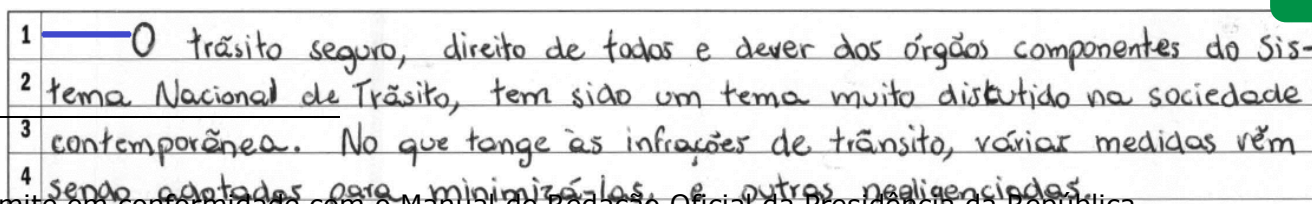 1 O trãsito seguro, direito de todos e dever dos órgãos componentes do Sis-
2 tema Nacional de Trãsito, tem sido um tema muito discutido na sociedade
3 contemporãnea. No que tange às infrações de trãnsito, várias medidas vẽm
4 sendo adotadas para minimizá-las, e outras negligenciadas.
em conformidade com o Manual de Redação Oficial da Presidência da República